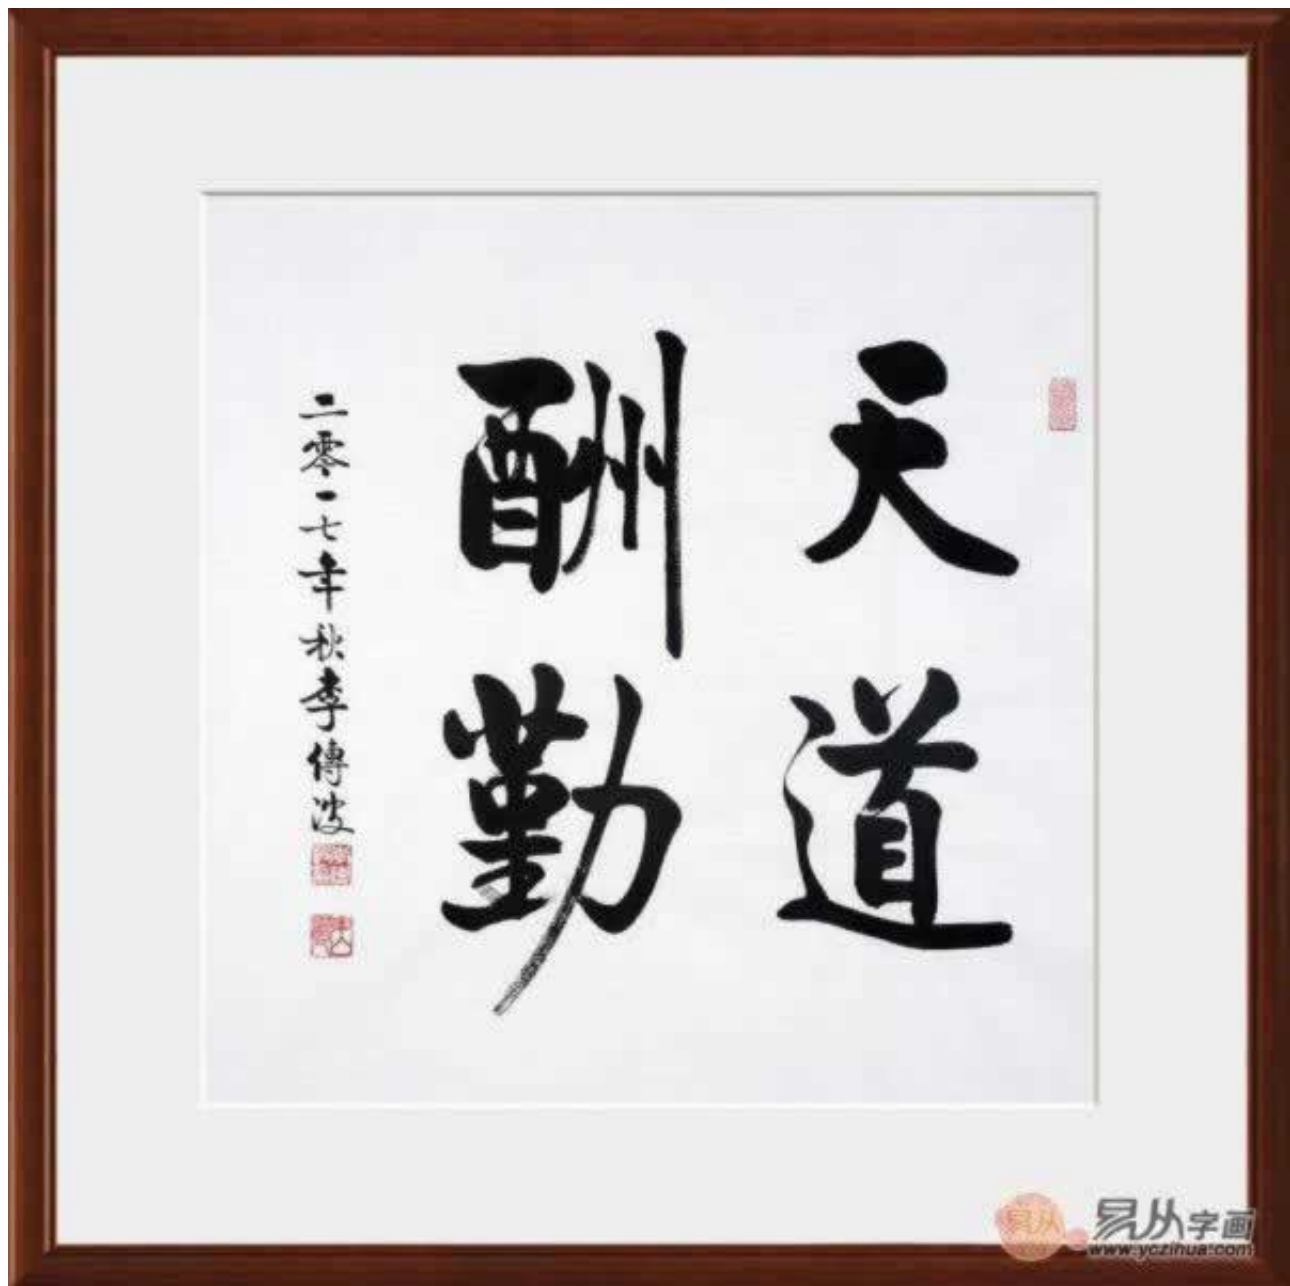 天道
酬勤
二零一七年秋李傳波
易从
易从字画
www.yczihua.com